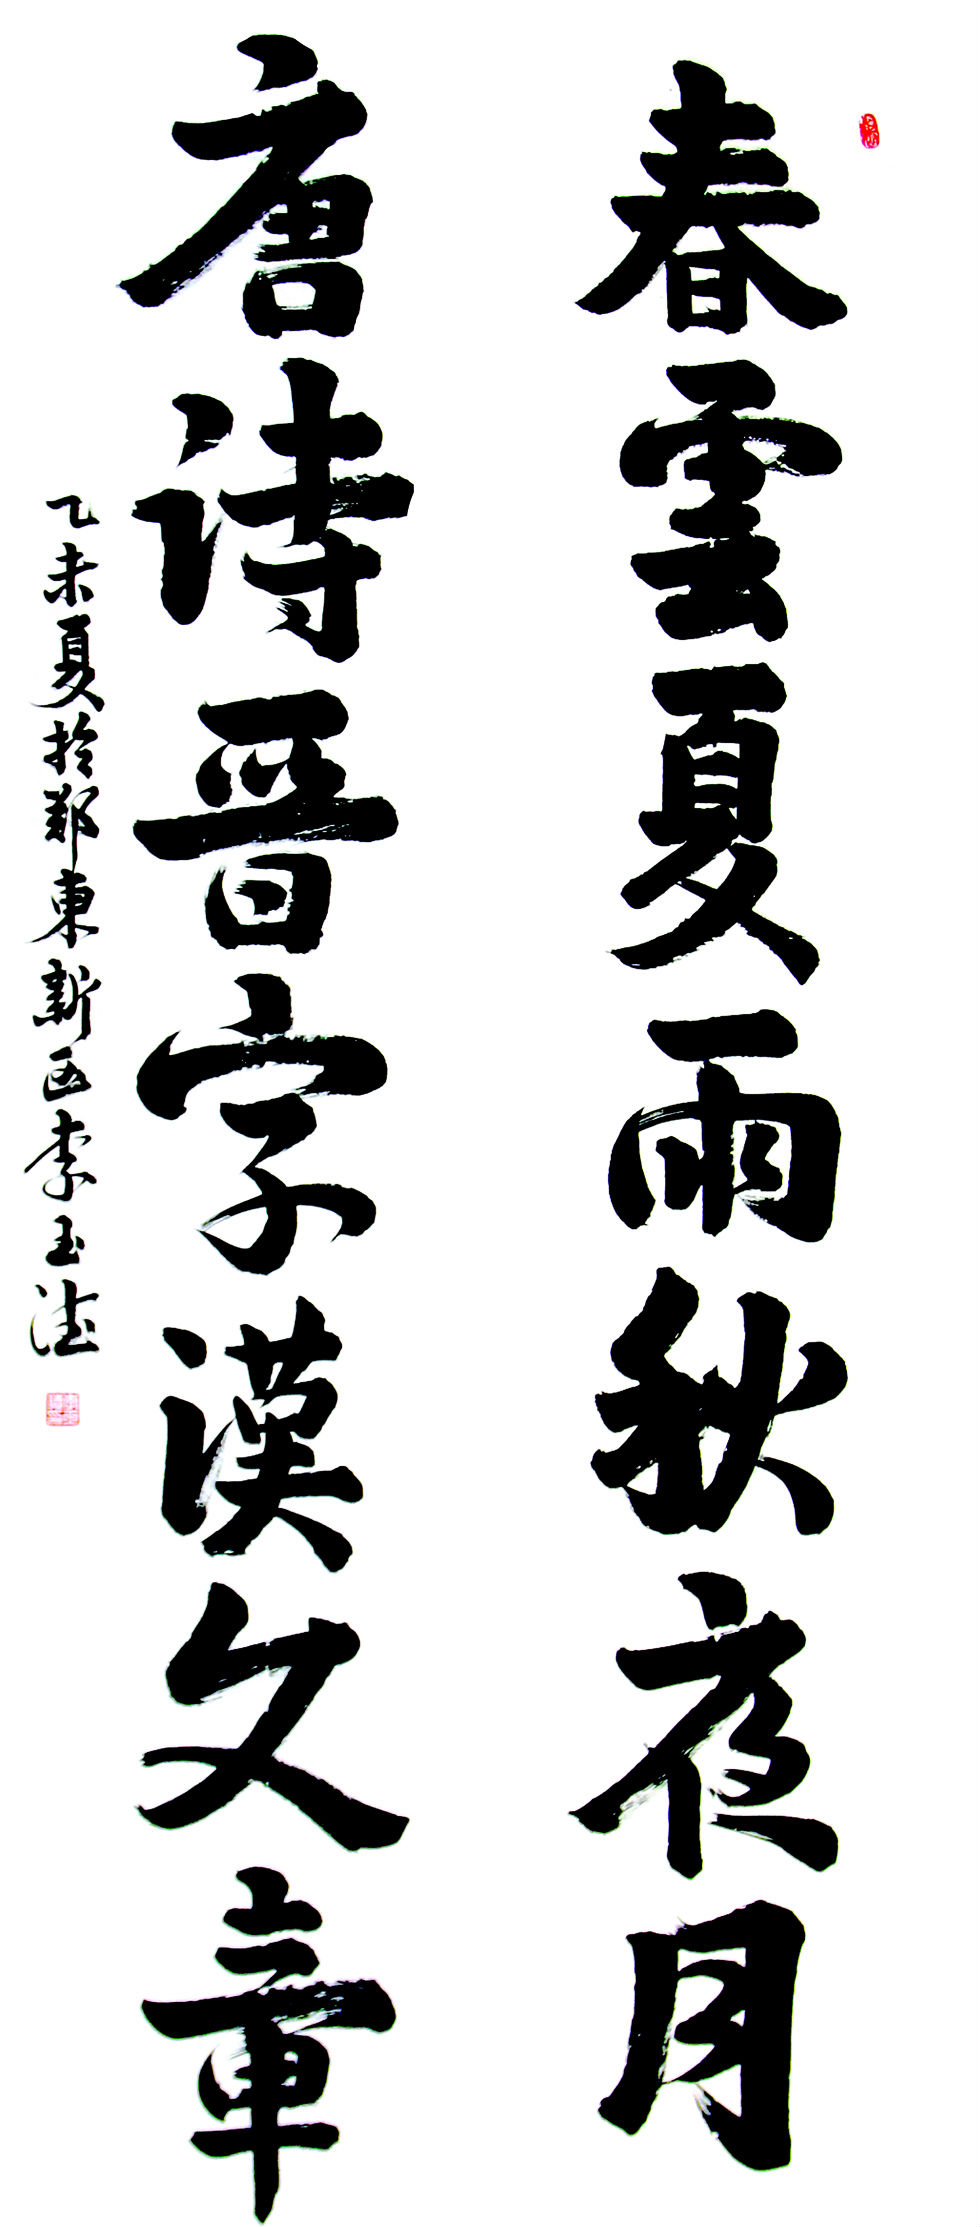 春雲夏雨秋夜月
唐诗晋字漢文章
乙未夏於郑東新区李玉德